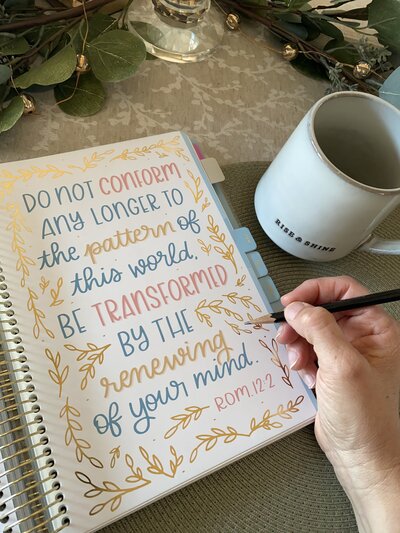 DO NOT CONFORM
ANY LONGER TO
the pattern of
this world,
BE TRANSFORMED
BY THE
renewing
of your mind.
ROM. 12:2
RISE & SHINE